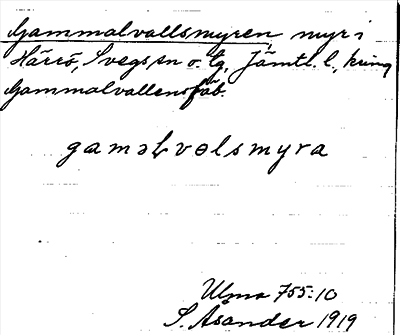 Gammalvallsmyren, myr i
Härrö, Svegs sn o. tg, Jämtl. l., kring
Gammalvallens fäb.
gaməlvəlsmyra
Ulma 755:10
S. Åsander 1919